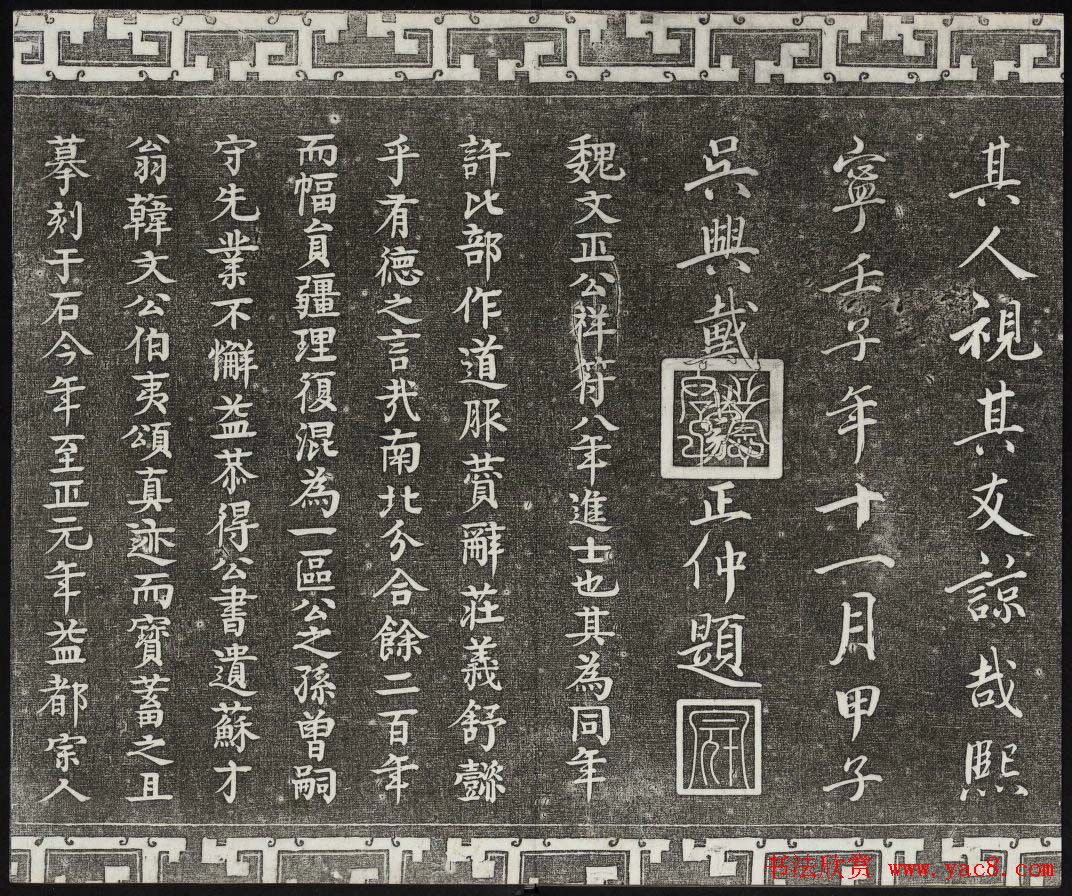 其人視其文諒哉熙
寧壬子年十一月甲子
吳興戴
正仲題
魏文正公祥符八年進士也其為同年
許比部作道服賛辭莊義舒懿
乎有德之言哉南北分合餘二百年
而幅員疆理復混為一區公之孫曾嗣
守先業不懈益恭得公書遺蘇才
翁韓文公伯夷頌真迹而寶蓄之且
摹刻于石今年至正元年益都宗人
书法欣赏 www.yac8.com